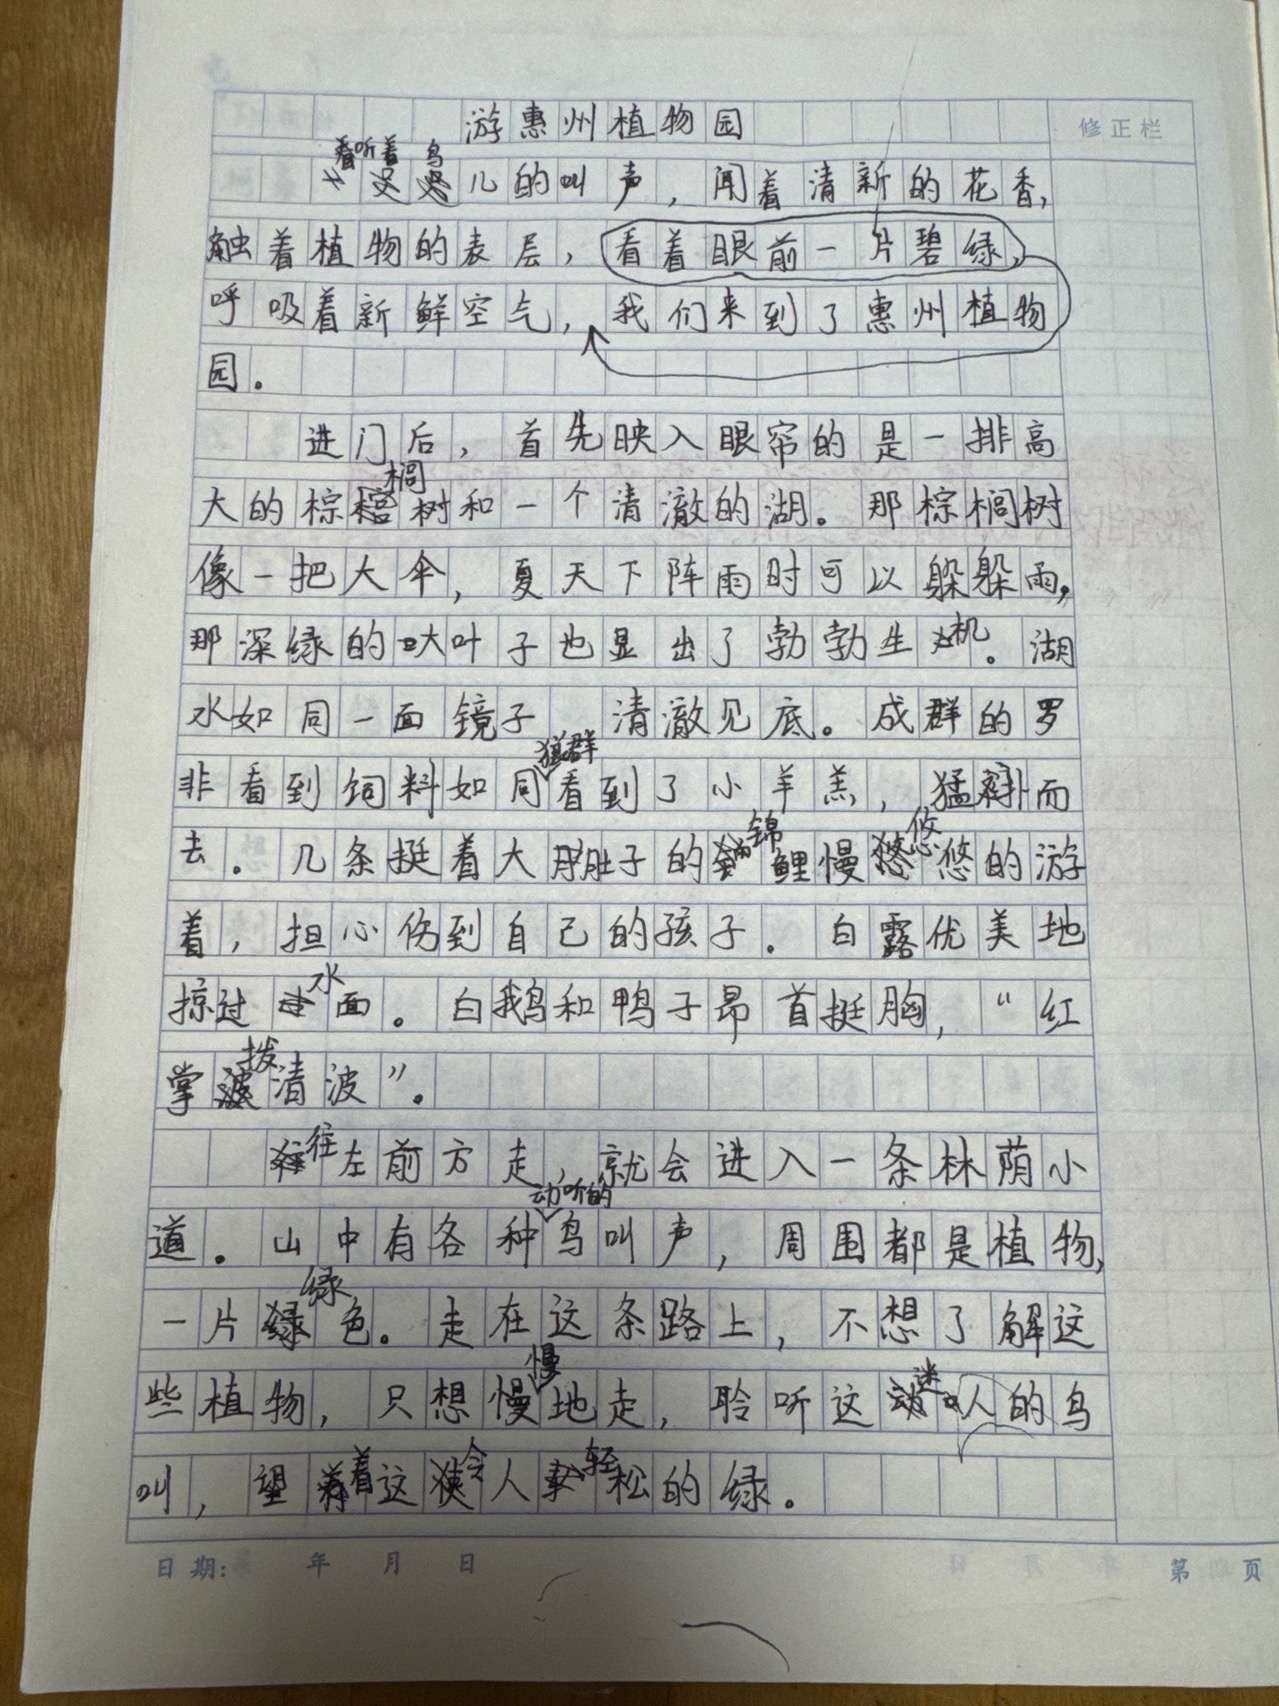 游惠州植物园
修正栏
听着鸟儿的叫声，闻着清新的花香，
触着植物的表层，看着眼前一片碧绿，
呼吸着新鲜空气，我们来到了惠州植物
园。
进门后，首先映入眼帘的是一排高
大的棕榈树和一个清澈的湖。那棕榈树
像一把大伞，夏天下阵雨时可以躲躲雨，
那深绿的大叶子也显出了勃勃生机。湖
水如同一面镜子 清澈见底。成群的罗
非看到饲料如同狼群看到了小羊羔，猛扑而
去。几条挺着大肚子的锦鲤慢悠悠的游
着，担心伤到自己的孩子。白露优美地
掠过水面。白鹅和鸭子昂首挺胸，“红
掌拨清波”。
往左前方走，就会进入一条林荫小
道。山中有各种动听的鸟叫声，周围都是植物，
一片绿色。走在这条路上，不想了解这
些植物，只想慢慢地走，聆听这迷人的鸟
叫，望着这令人轻松的绿。
日期： 年 月 日 第 页